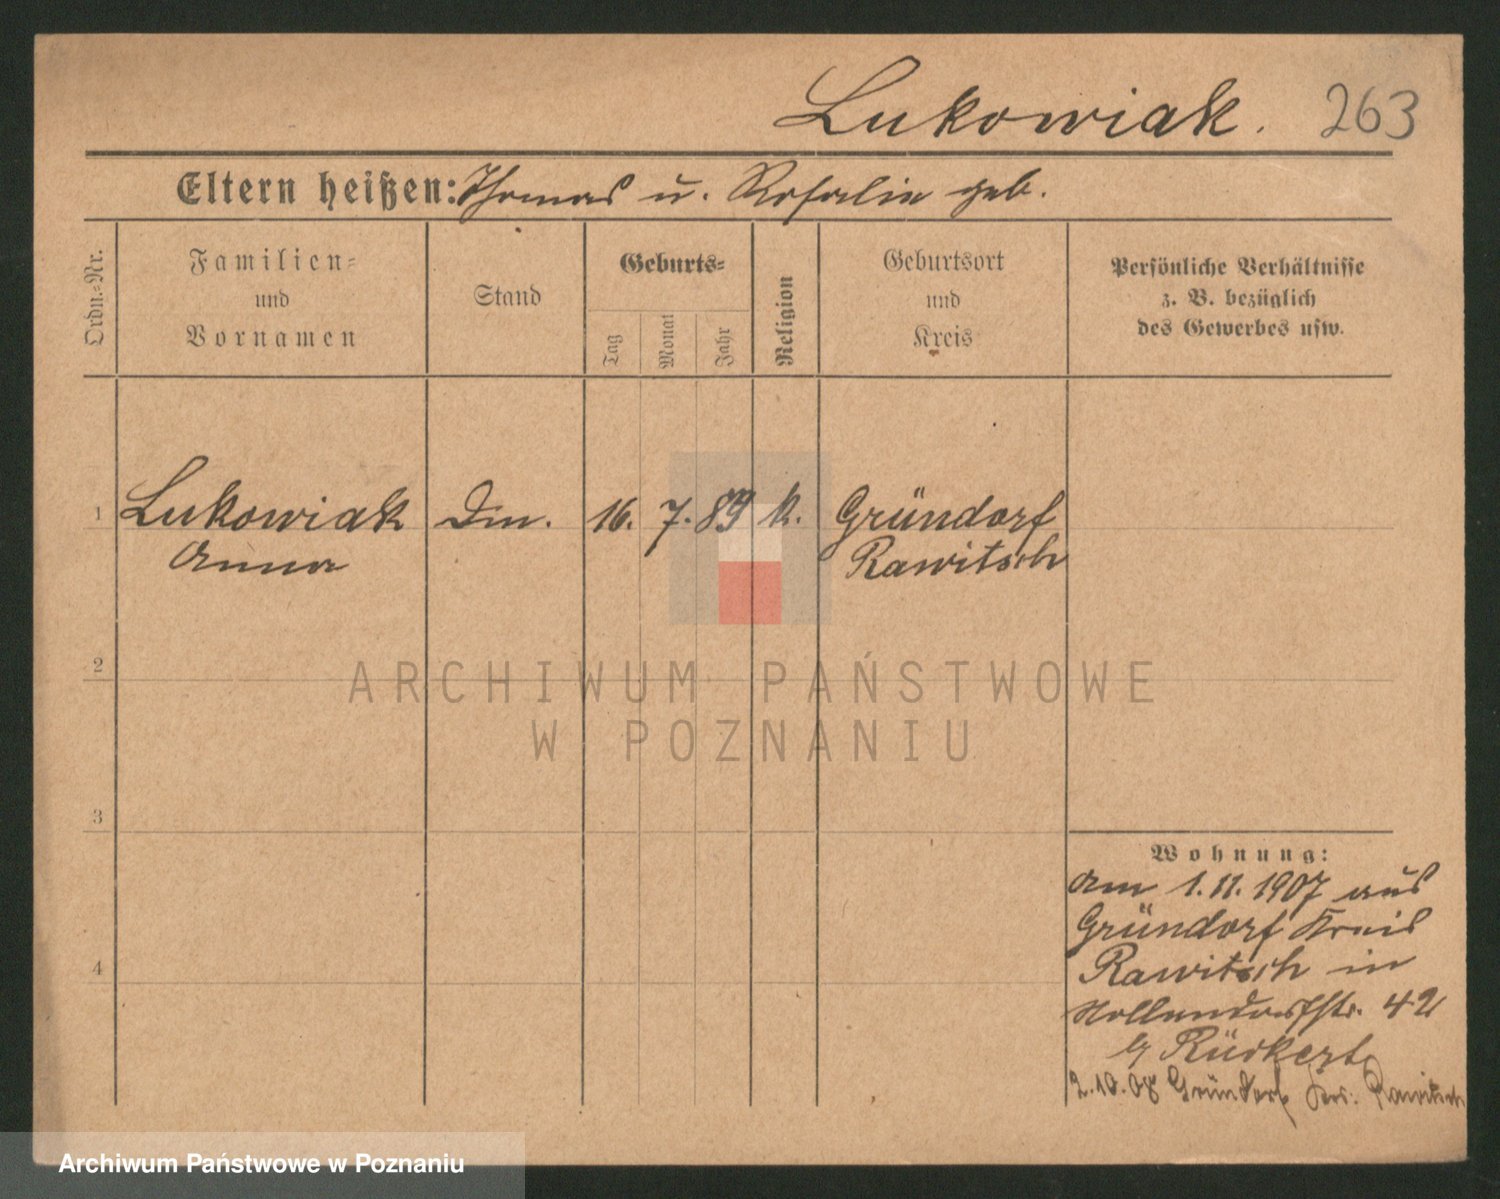 Lukowiak. 263
Eltern heißen: Thomas u. Rosalie geb.
Ordn.-Nr.
Familien-
und
Vornamen
Stand
Geburts-
Tag
Monat
Jahr
Religion
Geburtsort
und
Kreis
Persönliche Verhältnisse
z. B. bezüglich
des Gewerbes usw.
1 Lukowiak Dm. 16. 7. 89 k. Gründorf
Anna Rawitsch
2
ARCHIWUM PAŃSTWOWE
W POZNANIU
3
Wohnung:
am 1.11.1907 aus
Gründorf Kreis
Rawitsch in
4
42
Rückert
2.10.08 Gründorf Krs. Rawitsch
Archiwum Państwowe w Poznaniu